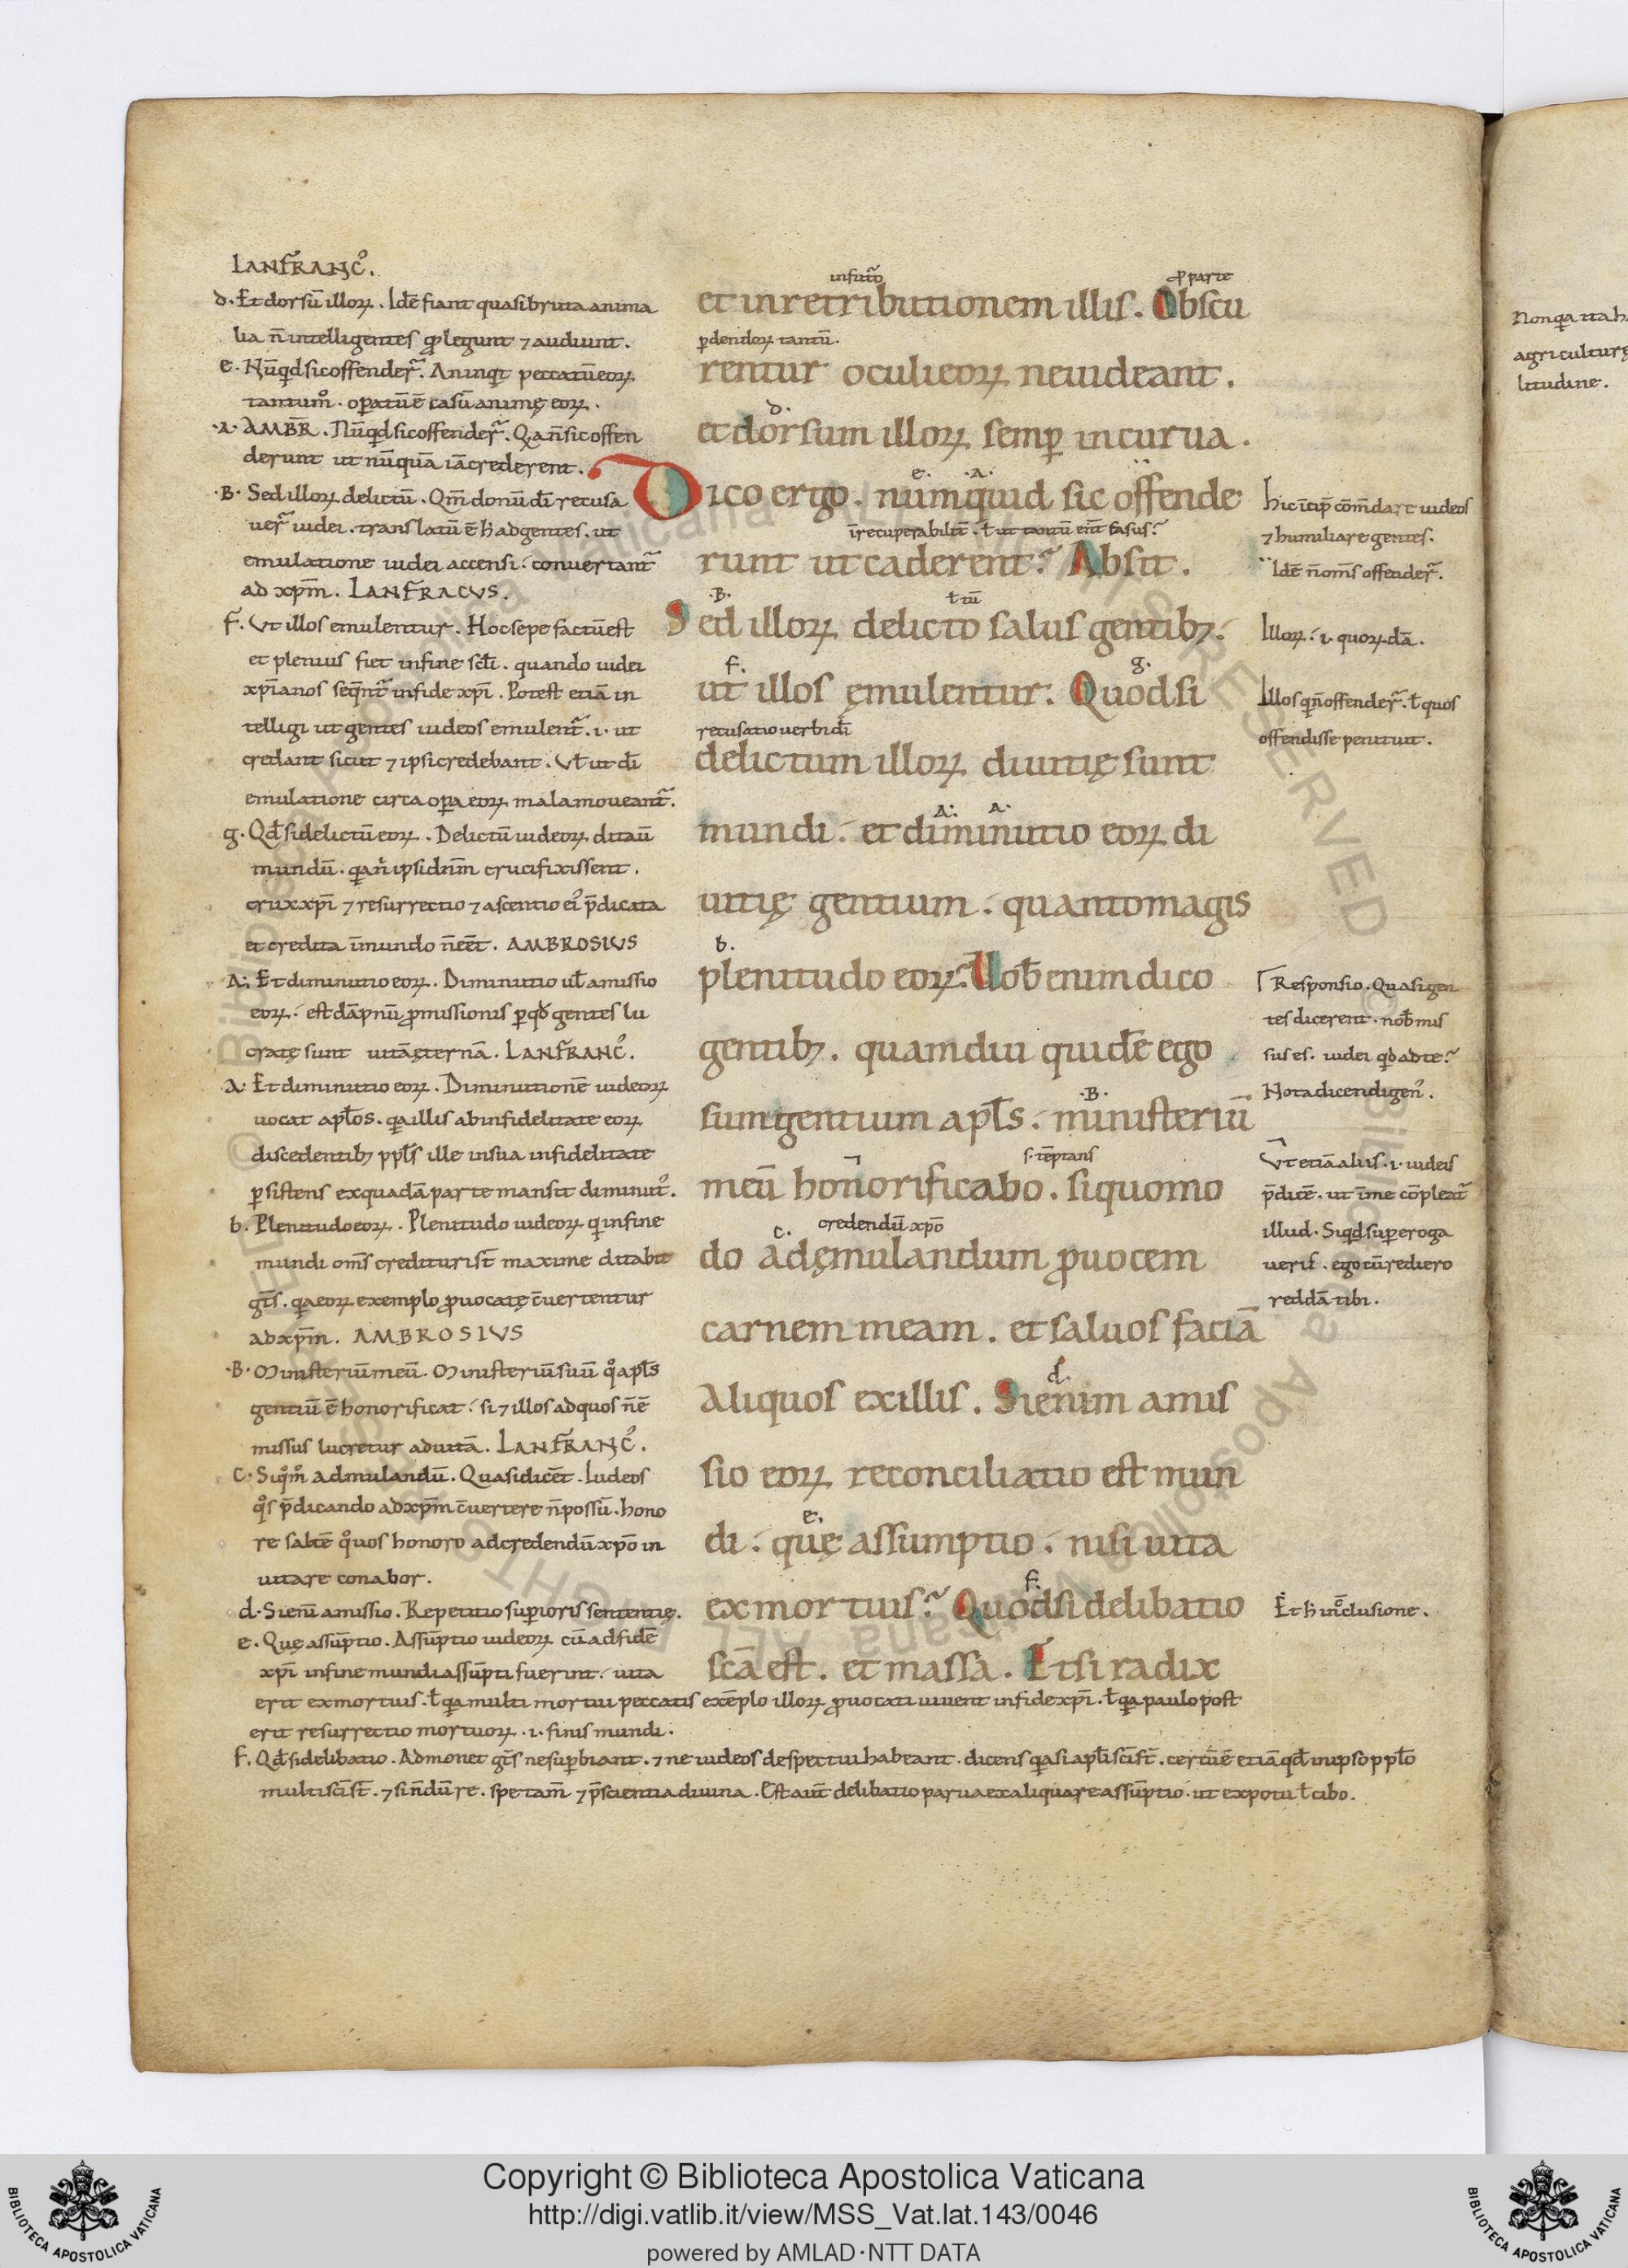 LANFRANC᷒.
d. Et dorsū illoꝝ. Idē fiant quasi bruta anima
lia n̄ intelligentes q̄ legunt ⁊ audiunt.
e. Nūqd sic offender̄. An inqt peccatū eoꝝ
tantum᷒ opatū ē casū animę eoꝝ.
.a. AMBR̄. Nūqd sic offender̄. Qa n̄ sic offen
derunt ut nūquā iā crederent.
.B. Sed illoꝝ delictū. Qm̄ donū dī recusa
uer̄ iudei. translatū ē h̄ ad gentes. ut
emulatione iudei accensi. conuertant᷑
ad xpm̄. LANFRACVS.
F. Vt illos emulentur. Hoc sepe factū est
et plenius fiet in fine scl̄i. quando iudei
xpianos seqnt᷑ in fide xpī. Potest etiā in
telligi ut gentes iudeos emulent᷑ .i. ut
credant sicut ⁊ ipsi credebant. Vl̄ ut dī
emulatione circa opa eoꝝ mala moueant᷑.
g. Qd̄ si delictū eoꝝ. Delictū iudeoꝝ ditauī
mundū. qa nī ipsi dn̄m crucifixissent.
crux xpī ⁊ resurrectio ⁊ ascentio ei᷒ p̄dicata
et credita ī mundo n̄ eēt. AMBROSIVS
A: Et diminutio eoꝝ. Diminutio ul̄ amissio
eoꝝ. est dāpnū p̱missionis ꝑ qd̄ gentes lu
cratę sunt uitā ęternā. LANFRANC᷒.
a. Et diminutio eoꝝ. Diminutionē iudeoꝝ
uocat apl̄os. qa illis ab infidelitate eoꝝ
discedentibꝫ ppl̄s ille in sua infidelitate
ꝑsistens ex quadā parte mansit diminut᷒.
b. Plenitudo eoꝝ. Plenitudo iudeoꝝ q in fine
mundi om̄s credituri st̄ maxime ditabit
gt̄s. qa eoꝝ exemplo ꝓuocatę c̄uertentur
ad xpm̄. AMBROSIVS
.B. Ministeriū meū. Ministeriū suū qo apl̄s
gentiū ē honorificat. si ⁊ illos ad quos n̄ ē
missus lucretur ad uitā. LANFRANC᷒.
c. Siqm̊ admulandū. Quasi dicēt. Iudeos
qo̊s p̄dicando ad xpm̄ c̄uertere n̄ possū. hono
re saltē quos honoro ad credendū xpō in
uitare conabor.
d. Si enī amissio. Repetitio supioris sententię.
e. Quę assūptio. Assūptio iudeoꝝ cū ad fidē
xpī in fine mundi assūpti fuerint. uita
erit ex mortuis. ł qa multi mortui peccatis exēplo illoꝝ ꝓuocati uiuent in fide xpī. ł qa paulo post
erit resurrectio mortuoꝝ .i. finis mundi.
F. Qd̄ si delibatio. Admonet gt̄s ne supbiant. ⁊ ne iudeos despectui habeant. dicens qasi apl̄i sc̄i st̄. certū ē etiā qd̄ in ipso ppl̄o
multi sc̄i st̄. ⁊ si n̄dū re. spe tam̄ ⁊ p̄scientia diuina. Est aut̄ delibatio parua ex aliqua re assūptio. ut ex potu ł cibo.
in futuro
ꝓ parte
et in retributionem illis. Obscu
ꝑdendoꝝ tantū.
rentur oculi eoꝝ ne uideant.
d.
et dorsum illoꝝ semꝑ incurua.
e. .A.
Dico ergo. numquid sic offende
īrecuperabilit̄. ł ut tantū eēt casus?
runt ut caderent? Absit.
.B. ł tū
Sed illoꝝ delicto salus gentibꝫ.
f. g.
ut illos ęmulentur. Quod si
recusatio uerbi dī
delictum illoꝝ diuitię sunt
A: a.
mundi. et diminutio eoꝝ di
uitię gentium. quanto magis
b.
plenitudo eoꝝ? Uob̄ enim dico
gentibꝫ. quamdiu quidē ego
.B.
sum gentium apl̄s. ministeriū
s. tēptans
meū honorificabo. si quomo
c. credendū xpō
do ad ęmulandum ꝓuocem
carnem meam. et saluos faciā
d.
aliquos ex illis. Si enim amis
sio eoꝝ reconciliatio est mun
e.
di. quę assumptio. nisi uita
f.
ex mortuis? Quod si delibatio
scā est. et massa. Et si radix
Hic īcip̄ cōm̄dare iudeos
⁊ humiliare gentes.
Idē n̄ om̄s offender̄.
Illoꝝ .i. quoꝝdā.
Illos q n̄ offender̄. ł quos
offendisse penituit.
Responsio. Quasi gen
tes dicerent. nob̄ mis
sus es. iudei qd ad te?
Nota dicendi gen᷒.
Vt etiā aliis .i. iudeis
p̄dicē. ut ī me cōpleat᷑
illud. Siqd supereroga
ueris. ego cū rediero
reddā tibi.
Et h̄ in c̄clusione.
agriculturę
litudine.
Copyright © Biblioteca Apostolica Vaticana
http://digi.vatlib.it/view/MSS_Vat.lat.143/0046
powered by AMLAD·NTT DATA
BIBLIOTECA APOSTOLICA VATICANA
BIBLIOTECA APOSTOLICA VATICANA